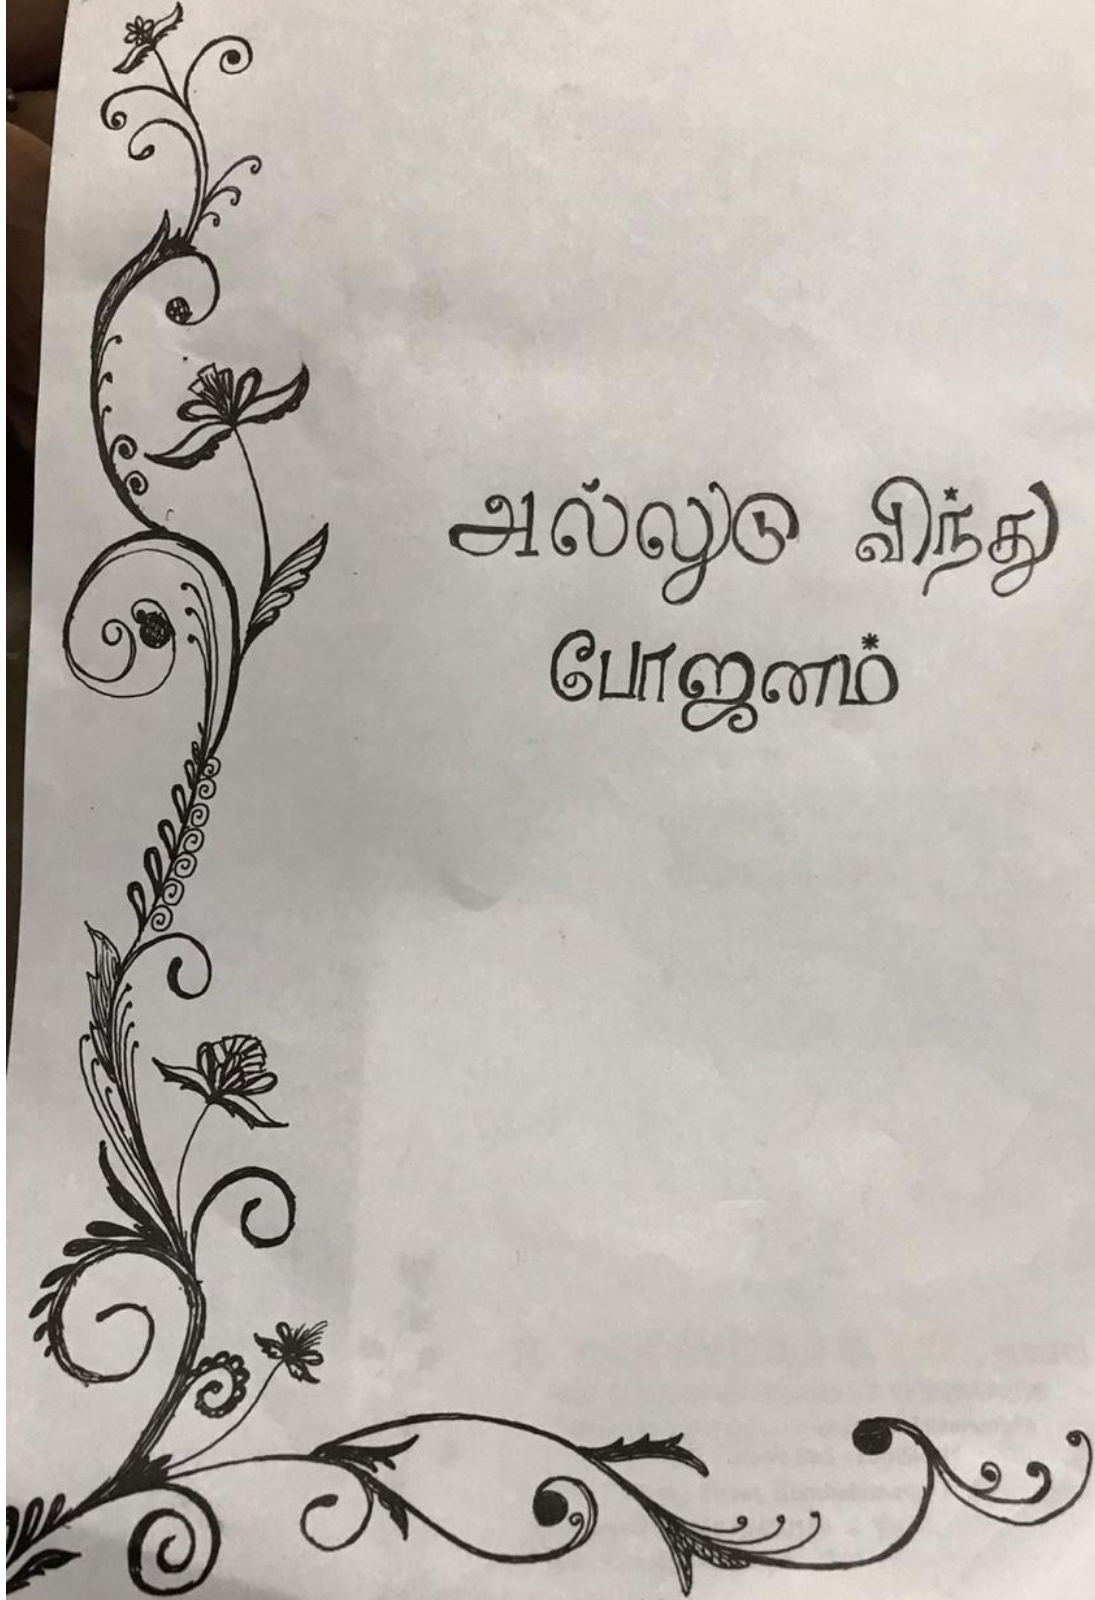 அல்லுடு விந்து
போஜனம்